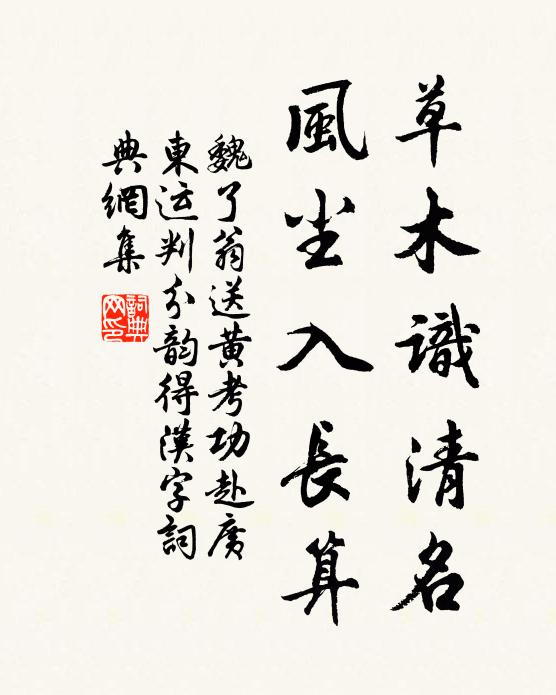 草木識清名
風尘入長算
魏了翁送黄考功赴廣
東运判分韵得漢字詞
典網集
詞典网印